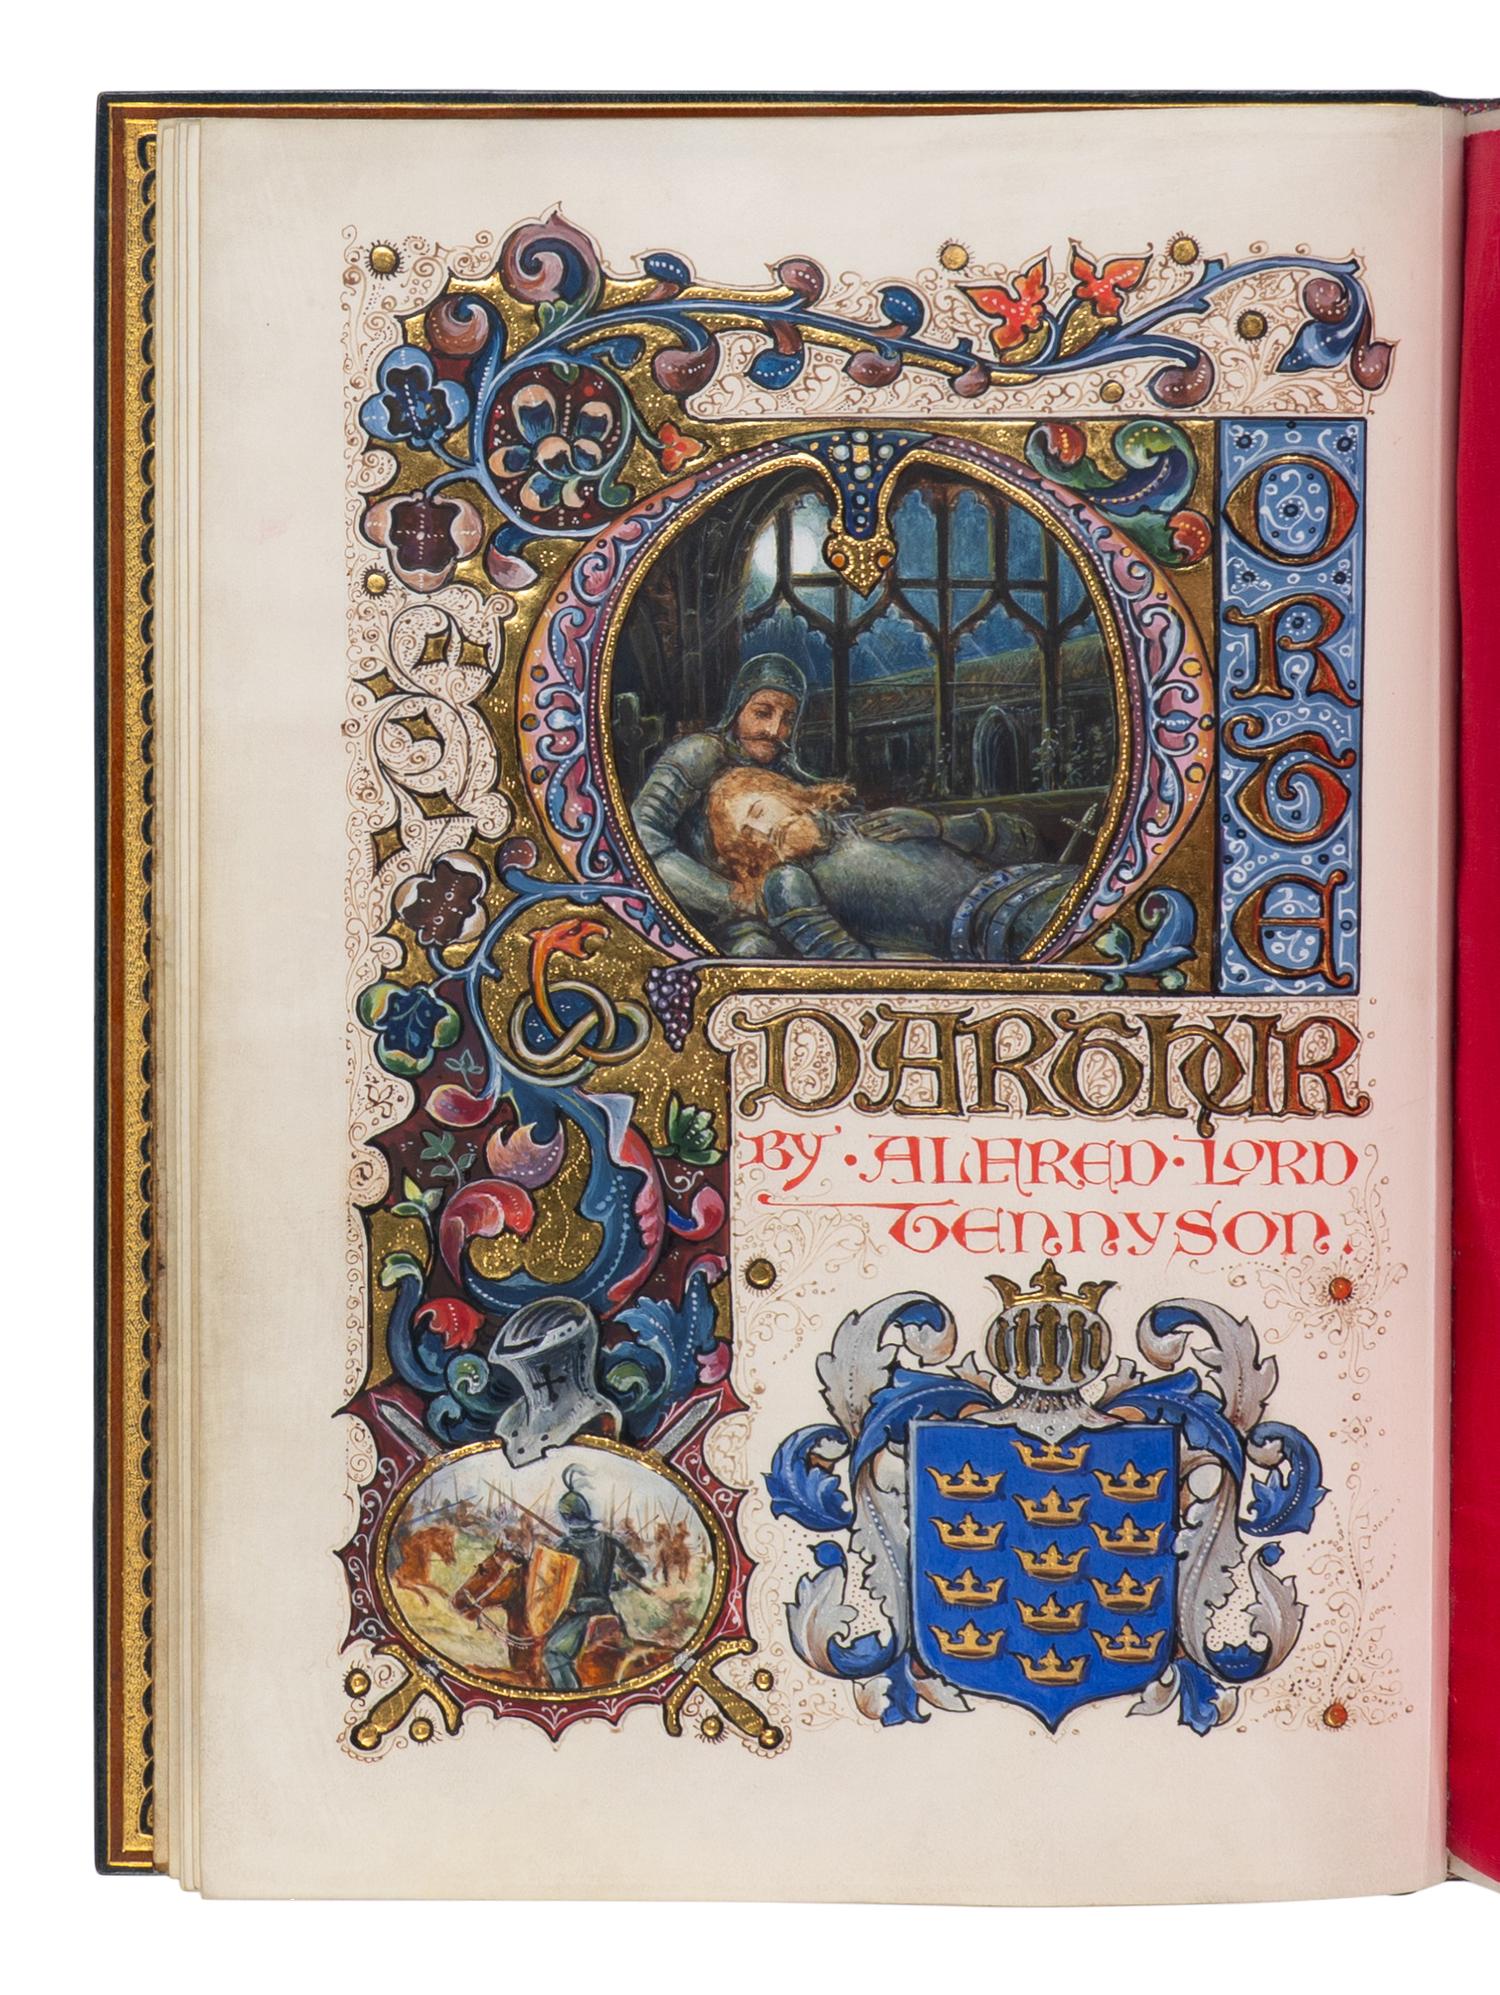 MORTE
D'ARTHUR
BY · ALFRED · LORD
TENNYSON.